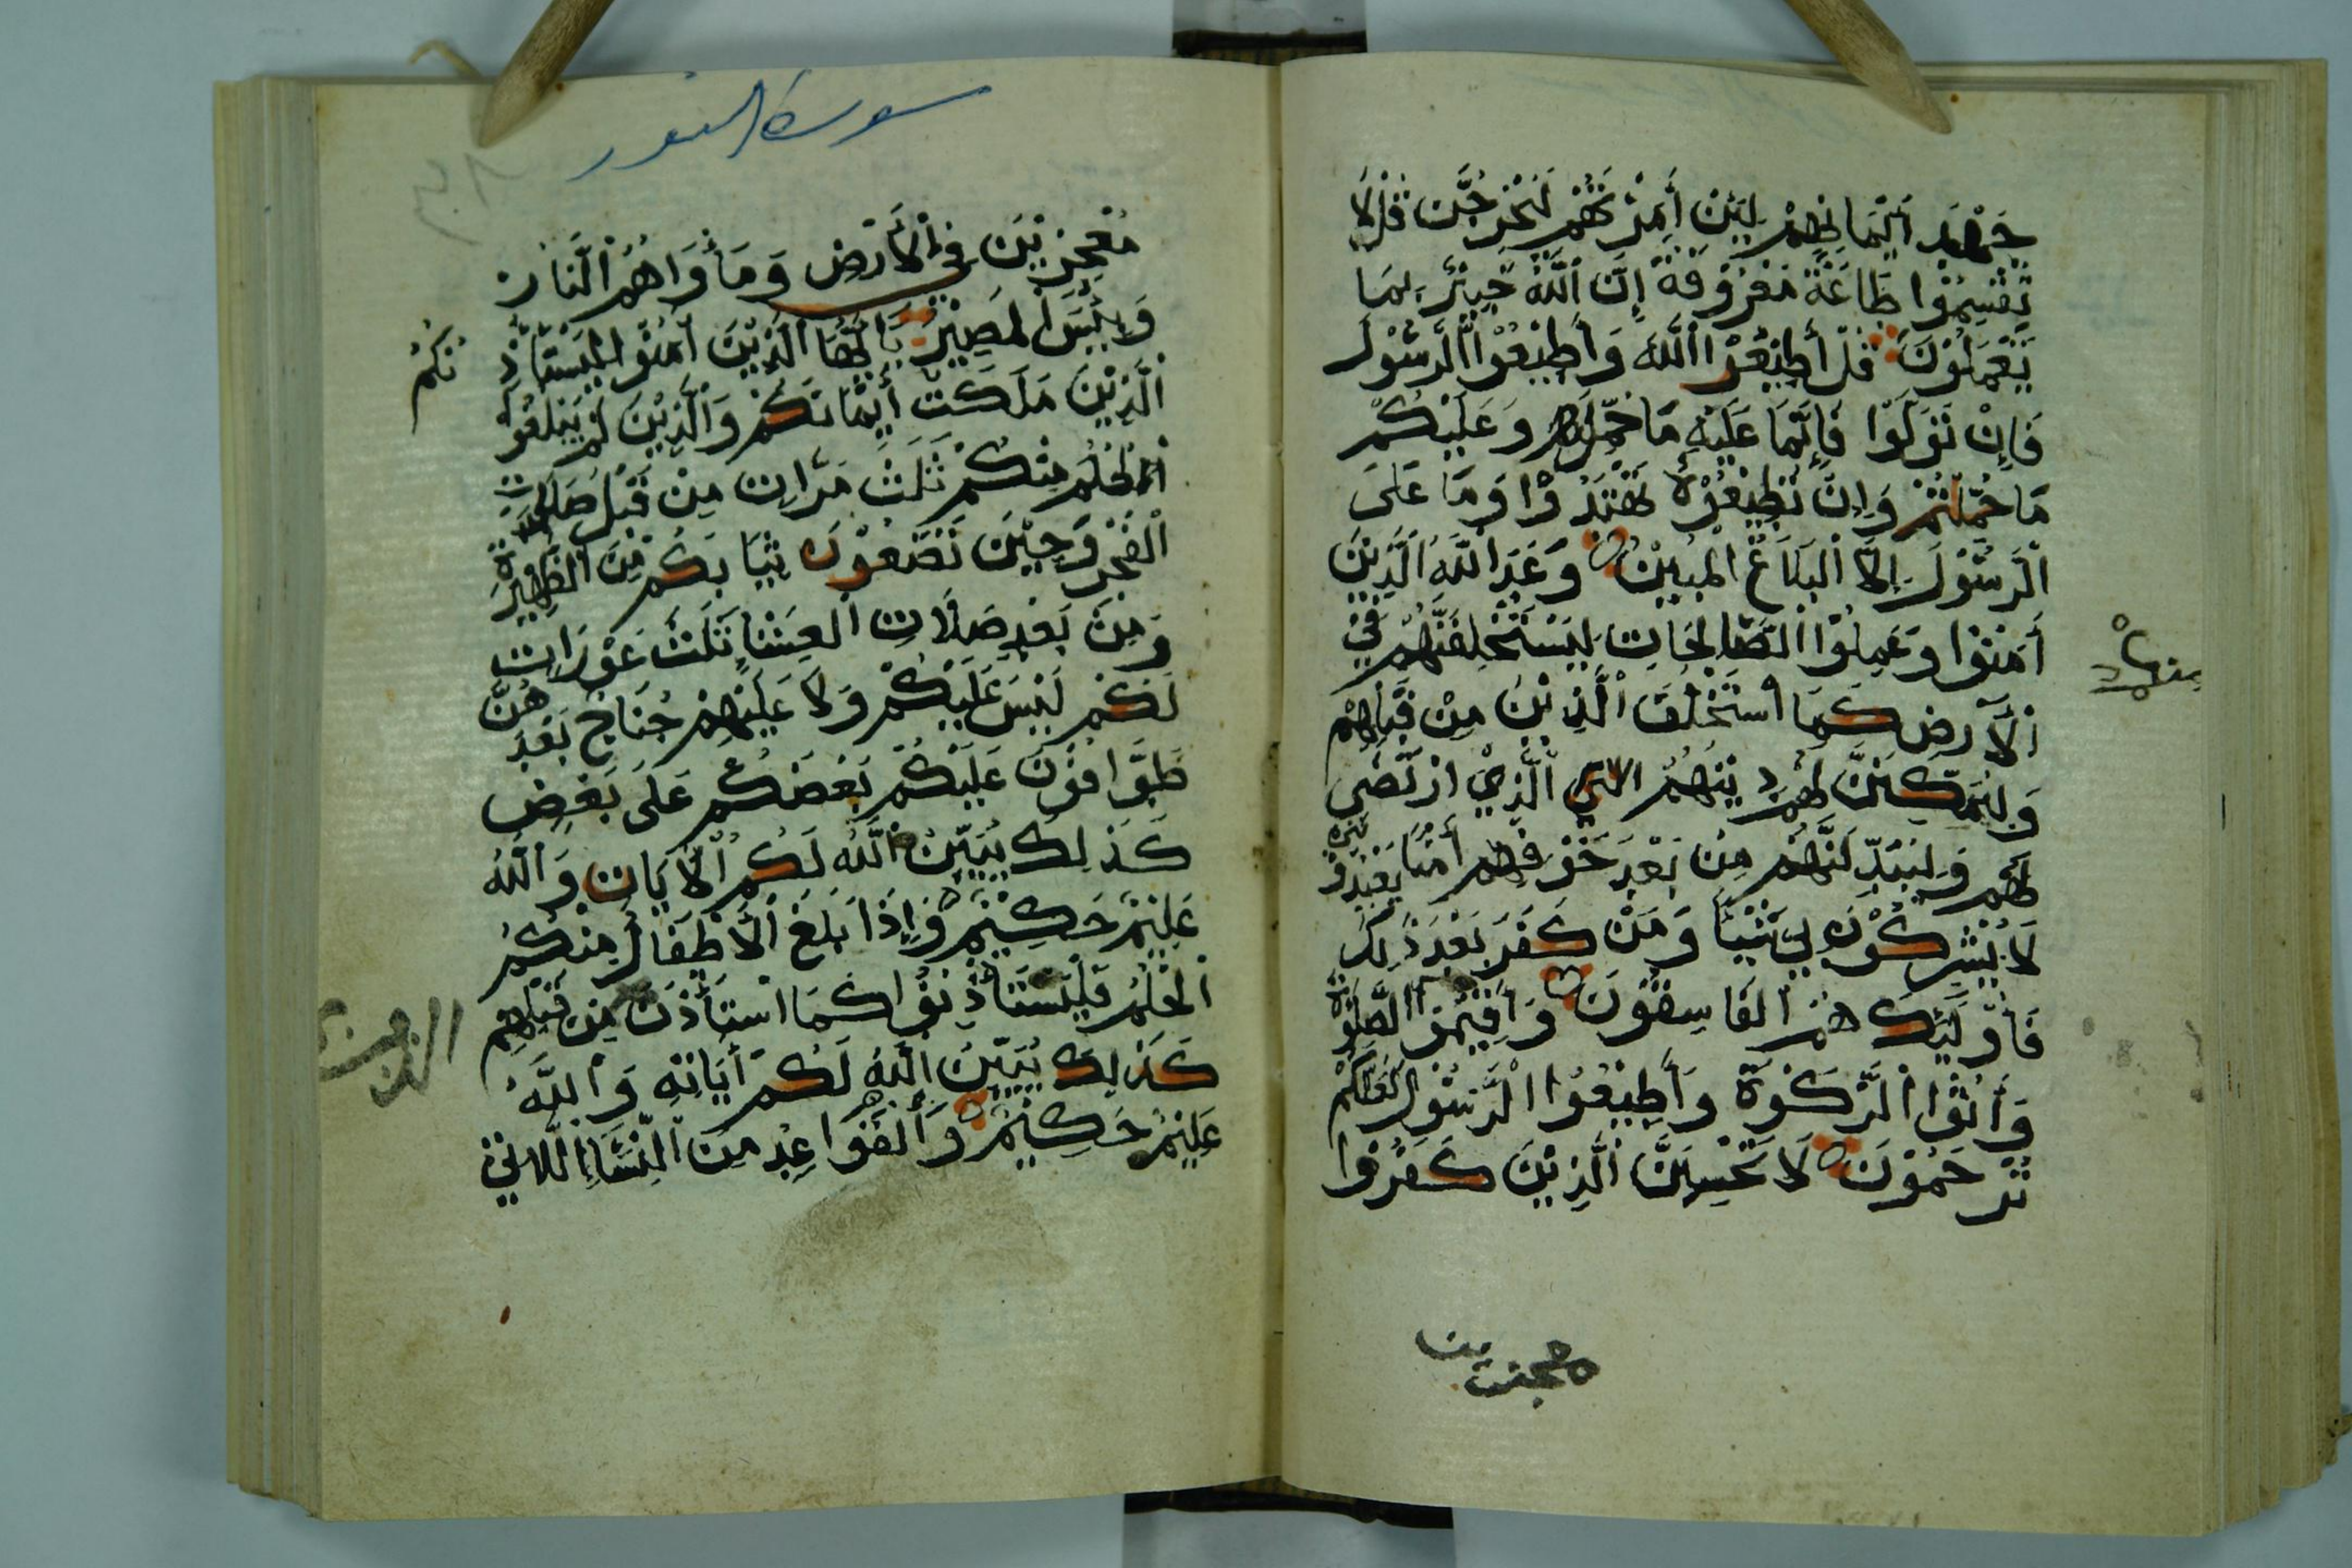 جَهْدَ اَيْمَانِهِمْ لَئِنْ أَمَرْتَهُمْ لَيَخْرُجُنَّ قُلْ لَا
تُقْسِمُوْا طَاعَةٌ مَعْرُوْفَةٌ إِنَّ اللَّهَ خَبِيْرٌ بِمَا
تَعْمَلُوْنَ قُلْ أَطِيْعُوْا اللَّهَ وَأَطِيْعُوْا الرَّسُوْلَ
فَإِنْ تَوَلَّوْا فَإِنَّمَا عَلَيْهِ مَا حُمِّلَ وَعَلَيْكُمْ
مَا حُمِّلْتُمْ وَإِنْ تُطِيْعُوْهُ تَهْتَدُوْا وَمَا عَلَى
الرَّسُوْلِ إِلَّا الْبَلَاغُ الْمُبِيْنُ وَعَدَ اللَّهُ الَّذِيْنَ
أَمَنُوْا وَعَمِلُوْا الصَّالِحَاتِ لَيَسْتَخْلِفَنَّهُمْ فِيْ
الْأَرْضِ كَمَا اسْتَخْلَفَ الَّذِيْنَ مِنْ قَبْلِهِمْ
وَلَيُمَكِّنَنَّ لَهُمْ دِيْنَهُمُ الَّذِيْ ارْتَضَى
لَهُمْ وَلَيُبَدِّلَنَّهُمْ مِنْ بَعْدِ خَوْفِهِمْ أَمْنًا يَعْبُدُوْنَنِيْ
لَا يُشْرِكُوْنَ بِيْ شَيْئًا وَمَنْ كَفَرَ بَعْدَ ذَلِكَ
فَأُوْلَئِكَ هُمُ الْفَاسِقُوْنَ وَأَقِيْمُوْا الصَّلَوةَ
وَأَتُوْا الزَّكَوةَ وَأَطِيْعُوْا الرَّسُوْلَ لَعَلَّكُمْ
تُرْحَمُوْنَ لَا تَحْسِبَنَّ الَّذِيْنَ كَفَرُوْا
معجزين
سورة النور
مُعْجِزِيْنَ فِيْ الْأَرْضِ وَمَأْوَاهُمُ النَّارُ
وَلَبِئْسَ الْمَصِيْرُ يَا أَيُّهَا الَّذِيْنَ أَمَنُوْا لِيَسْتَأْذِ
نْكُمُ
الَّذِيْنَ مَلَكَتْ أَيْمَانُكُمْ وَالَّذِيْنَ لَمْ يَبْلُغُوْا
الْحُلُمَ مِنْكُمْ ثَلَثَ مَرَّاتٍ مِنْ قَبْلِ صَلَاةِ
الْفَجْرِ وَحِيْنَ تَضَعُوْنَ ثِيَابَكُمْ مِنَ الظَّهِيْرَةِ
وَمِنْ بَعْدِ صَلَاتِ الْعِشَاءِ ثَلَثُ عَوْرَاتٍ
لَكُمْ لَيْسَ عَلَيْكُمْ وَلَا عَلَيْهِمْ جُنَاحٌ بَعْدَهُنَّ
طَوَّافُوْنَ عَلَيْكُمْ بَعْضُكُمْ عَلَى بَعْضٍ
كَذَلِكَ يُبَيِّنُ اللَّهُ لَكُمُ الْأَيَاتِ وَاللَّهُ
عَلِيْمٌ حَكِيْمٌ وَإِذَا بَلَغَ الْأَطْفَالُ مِنْكُمُ
الْحُلُمَ فَلْيَسْتَأْذِنُوْا كَمَا اسْتَأْذَنَ مِنْ قَبْلِهِمْ
كَذَلِكَ يُبَيِّنُ اللَّهُ لَكُمْ أَيَاتِهِ وَاللَّهُ
عَلِيْمٌ حَكِيْمٌ وَالْقَوَاعِدُ مِنَ النِّسَاءِ اللَّاتِيْ